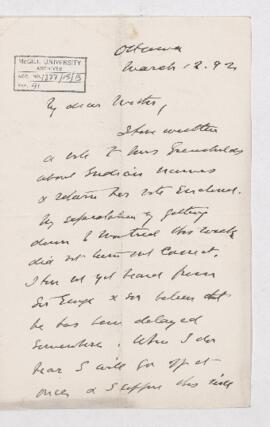 McGILL UNIVERSITY
ARCHIVES
ACC. NO. 1277/15/3
REF. 41
Ottawa
March 12. 92
My dear
I have written
a note to Mrs
about Indian names
& return her note enclosed.
My expectation of getting
down to Montreal this week
did not turn out correct.
I have not yet heard from
Sir & believe that
he has been delayed
somewhere. When I do
hear I will go off at
once & I suppose this will